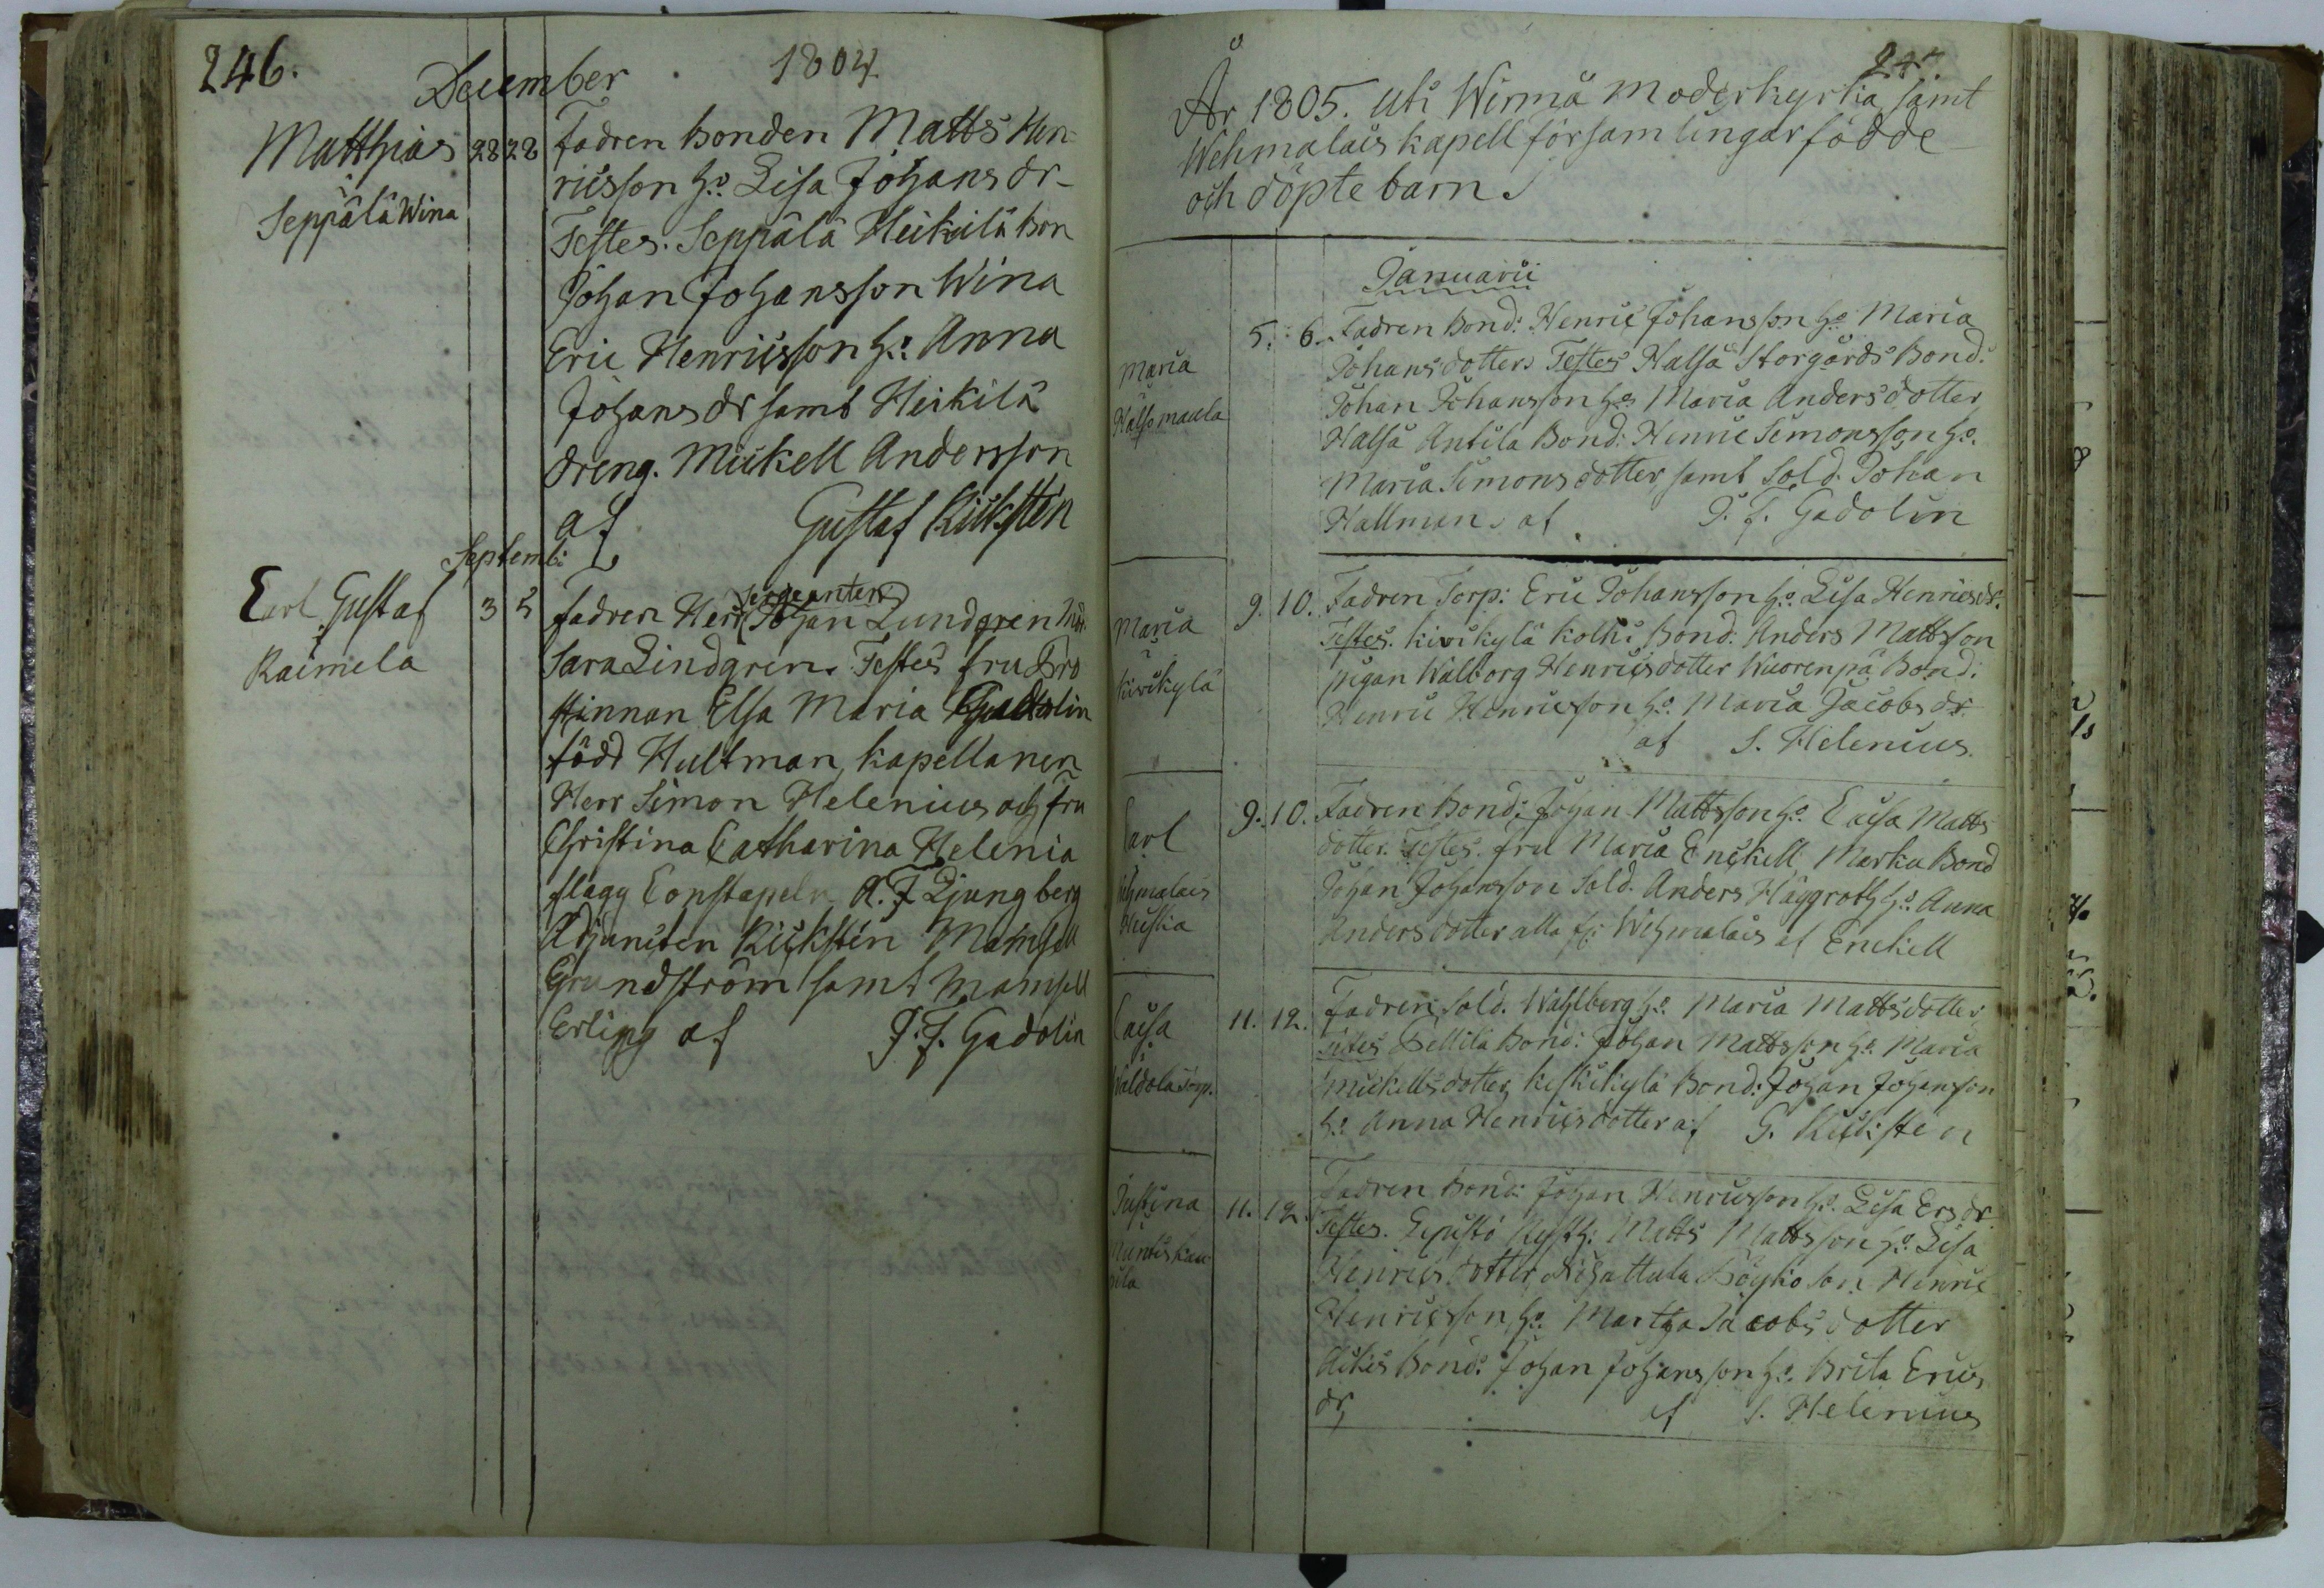 246.
December 1804
Matthias 28 28 Fadren bonden Matts Hen-
ricsson h:o Lisa Johansdr-
Seppälä Wina
Testes. Seppälä Heikilä bon
Johan Johansson Wina
Eric Henricsson h:o Anna
Johans dr samt Heikilä
dreng. Mickell Andersson
af Gustaf Rickstén
Septemb:
Carl Gustaf 3 5 Fadren Herr Sergeanten Johan Lundgren
Raimela
Sara Lindgren. Testes fru Pro
stinnan Elsa Maria Gadolin
född Hultman, kapellanen
Herr Simon Helenius och fru
Christina Catharina Helenia
flagg Constapeln A. F Ljungberg
Adjuncten Rickstén Mamsell
Grundström samt Mamsell
Erling af J. F. Gadolin
År 1805. uti Wirmå moderkyrka samt
Wehmalais kapell församlingar födde
och döpte barn
Januarii
Maria 5. 6. Fadren Bond: Henric Johansson h:o Maria
Halso maula
Johansdotter Testes Halsa Storgårds Bond:
Johan Johansson h:o Maria Andersdotter
Halsa Antila Bond: Henric Simonsson h:o
Maria Simonsdotter samt Sold. Johan
Hallman. af J. F. Gadolin
Maria 9. 10. Fadren Torp: Eric Johansson h:o Lisa Henricsdr.
Kivikylä
Testes. Kivikylä Kolki Bond: Anders Mattsson
pigan Walborg Henricsdotter Wuorenpä Bond:
Henric Henricsson h:o Maria Jacobsdr
af S. Helenius.
Carl 9. 10. Fadren Bond: Johan Mattsson h:o Caisa Matts
Wehmalais
dotter. Testes. fru Maria Enckell Marku Bond
Johan Johansson Sold. Anders Häggroth h:o Anna
Andersdotter alla fr: Wehmalais af Enckell
Caisa 11. 12. Fadren Sold. Wahlberg h:o Maria Mattsdotter
Waldola Torp.
Testes Pellilä Bond: Johan Mattsson h:o Maria
Mickellsdotter, Keskikylä Bond: Johan Johansson
h:o Anna Henricsdotter af G. Rickstén
Justina 11. 12. Fadren Bond: Johan Henricsson h:o Lisa Ersdr.
Testes. Matts Mattsson h:o Lisa
Henricsdotter son Henric
Henricsson h:o Martha Jacobsdotter
Bond: Johan Johansson h:o Brita Erics
dr, af S. Helenius